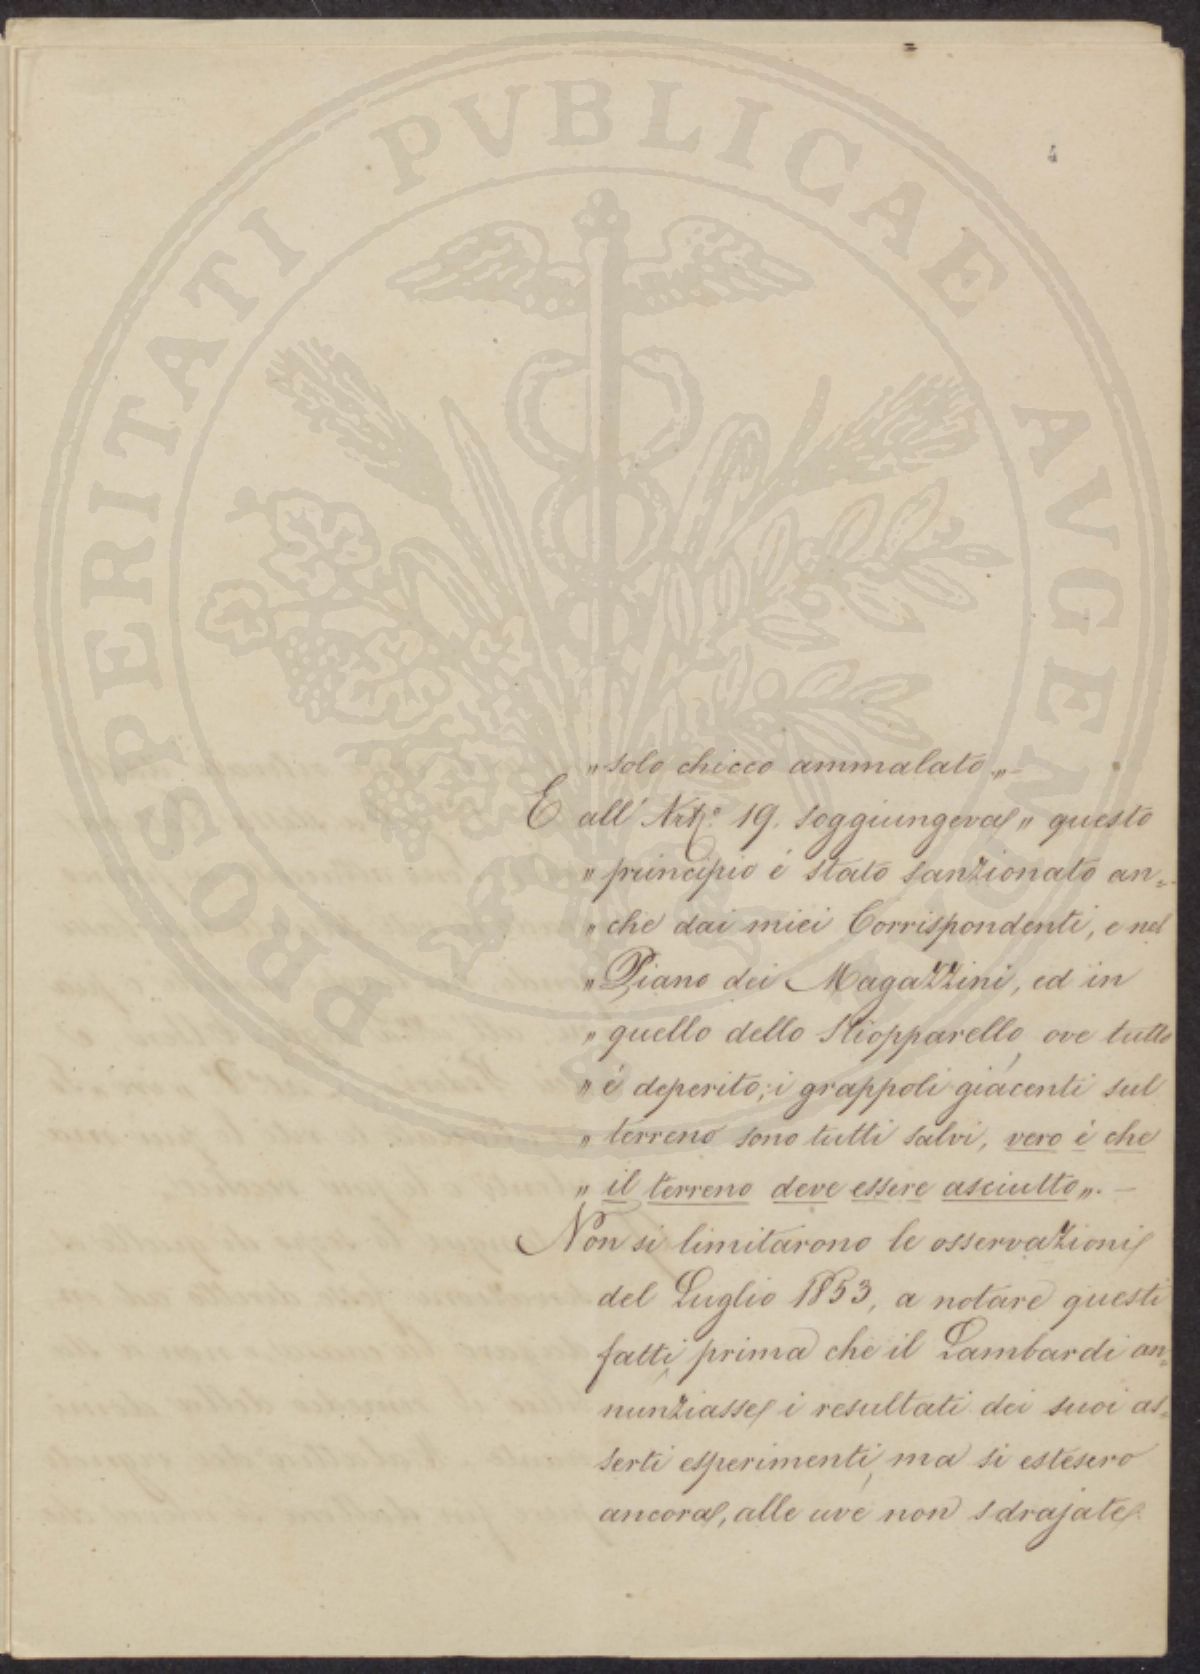 PROSPERITATI PVBLICAE AVGENDAE
4
„ solo chicco ammalato „ -
E all' Artº. 19. soggiungeva „ questo
„ principio é stato sanzionato an=
„ che dai miei Corrispondenti, e nel
„ Piano dei Magazzini, ed in
„ quello dello Stiopparello, ove tutto
„ é deperito; i grappoli giacenti sul
„ terreno sono tutti salvi, vero é che
„ il terreno deve essere asciutto „. -
Non si limitarono le osservazioni
del Luglio 1853, a notare questi
fatti, prima che il Lambardi an=
nunziasse i resultati dei suoi as=
serti esperimenti, ma si estesero
ancora, alle uve non sdrajate